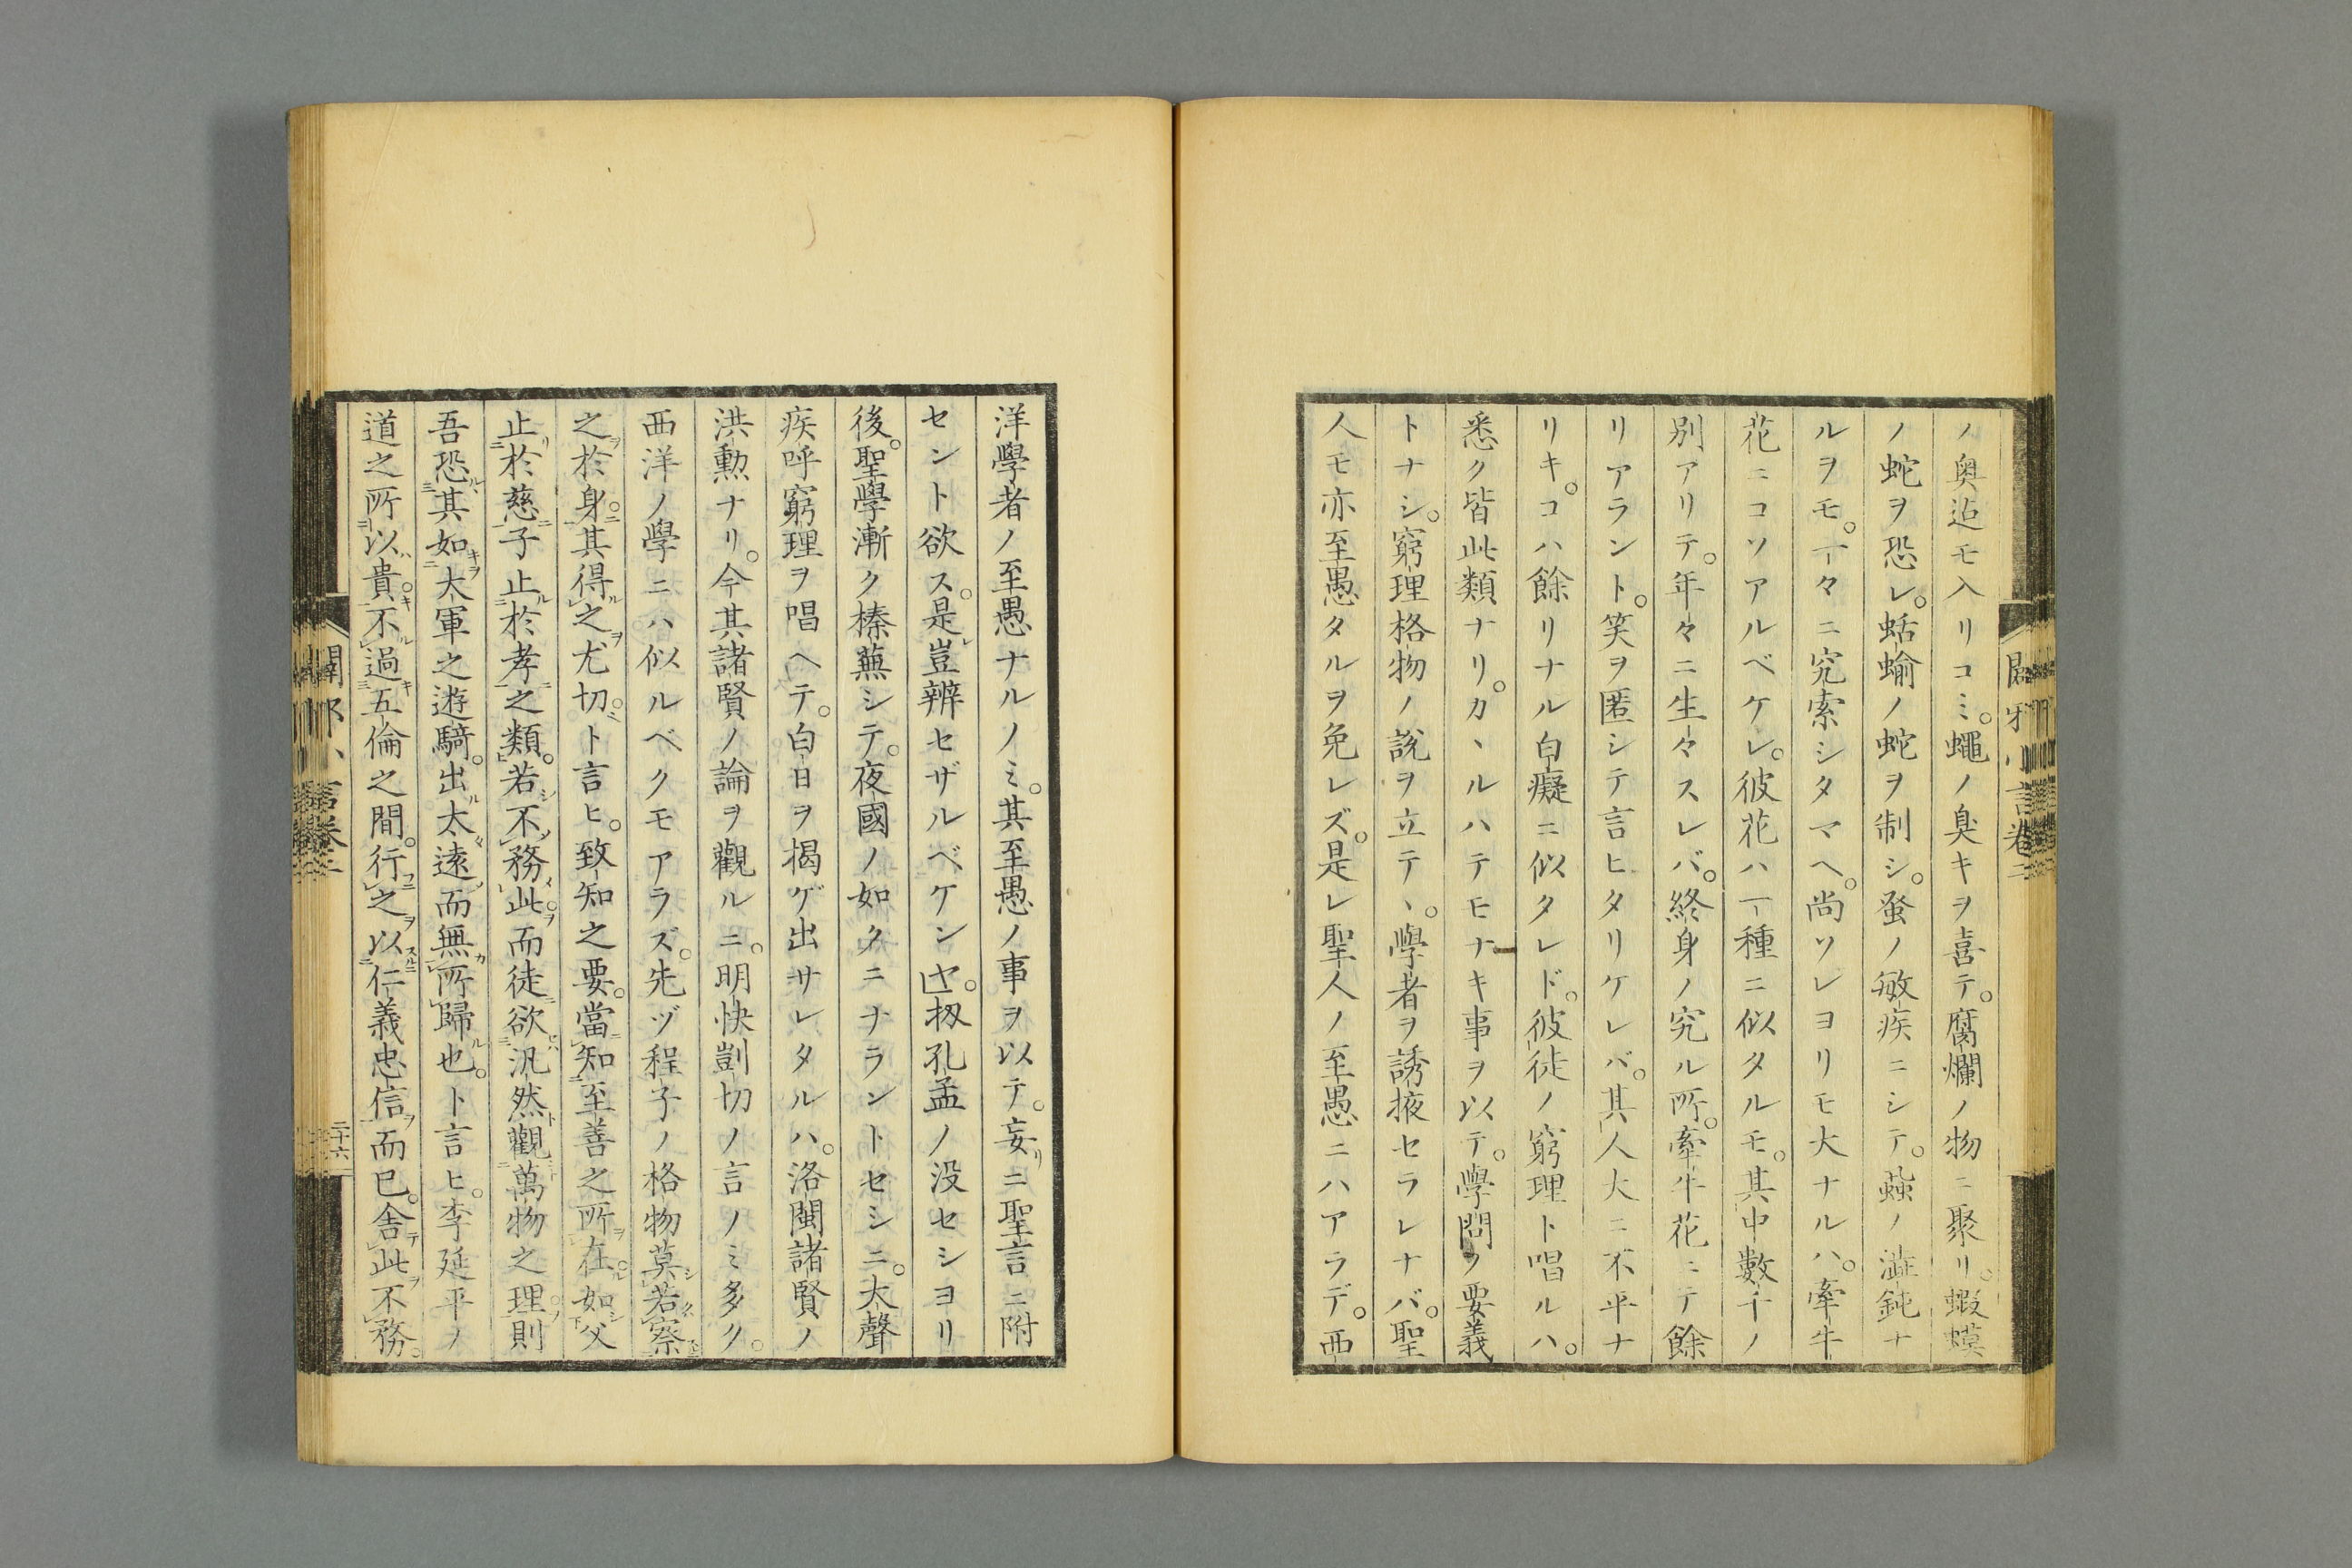 ノ奥迠モ入リコミ。蠅ノ臭キヲ喜テ。腐爛ノ物ニ聚リ。蝦蟆
ノ蛇ヲ恐レ。蛞蝓ノ蛇ヲ制シ。蚤ノ敏疾ニシテ。蝨ノ澁鈍ナ
ルヲモ。一々ニ究索シタマヘ。尚ソレヨリモ大ナルハ。牽牛
花ニコソアルベケレ。彼花ハ一種ニ似タルモ。其中數千ノ
別アリテ。年々ニ生々スレバ。終身ノ究ル所。牽牛花ニテ餘
リアラント。笑ヲ匿シテ言ヒタリケレバ。其人大ニ不平ナ
リキ。コハ餘リナル白癡ニ似タレド。彼徒ノ窮理ト唱ルハ。
悉ク皆此類ナリ。カヽルハテモナキ事ヲ以テ。學問ノ要義
トナシ。窮理格物ノ說ヲ立テヽ。學者ヲ誘掖セラレナバ。聖
人モ亦至愚タルヲ免レズ。是レ聖人ノ至愚ニハアラデ。西
洋學者ノ至愚ナルノミ。其至愚ノ事ヲ以テ。妄リニ聖言ニ附
セント欲ス。是レ豈辨セザルベケンヤ。扨孔孟ノ没セシヨリ
後。聖學漸ク榛蕪シテ。夜國ノ如クニナラントセシニ。大聲
疾呼窮理ヲ唱ヘテ。白日ヲ揭ゲ出サレタルハ。洛閩諸賢ノ
洪勲ナリ。今其諸賢ノ論ヲ觀ルニ。明快剴切ノ言ノミ多ク。
西洋ノ學ニハ似ルベクモアラズ。先ヅ程子ノ格物莫若察
之於身。其得之尤切。ト言ヒ。致知之要。當知至善之所在。如父
止於慈子止於孝之類。若不務此。而徒欲汎然觀萬物之理。則
吾恐其如大軍之遊騎。出太遠而無所歸也。ト言ヒ。李延平ノ
道之所以貴。不過五倫之間。行之以仁義忠信而已。舍此不務。
闢邪小言卷二
二十六